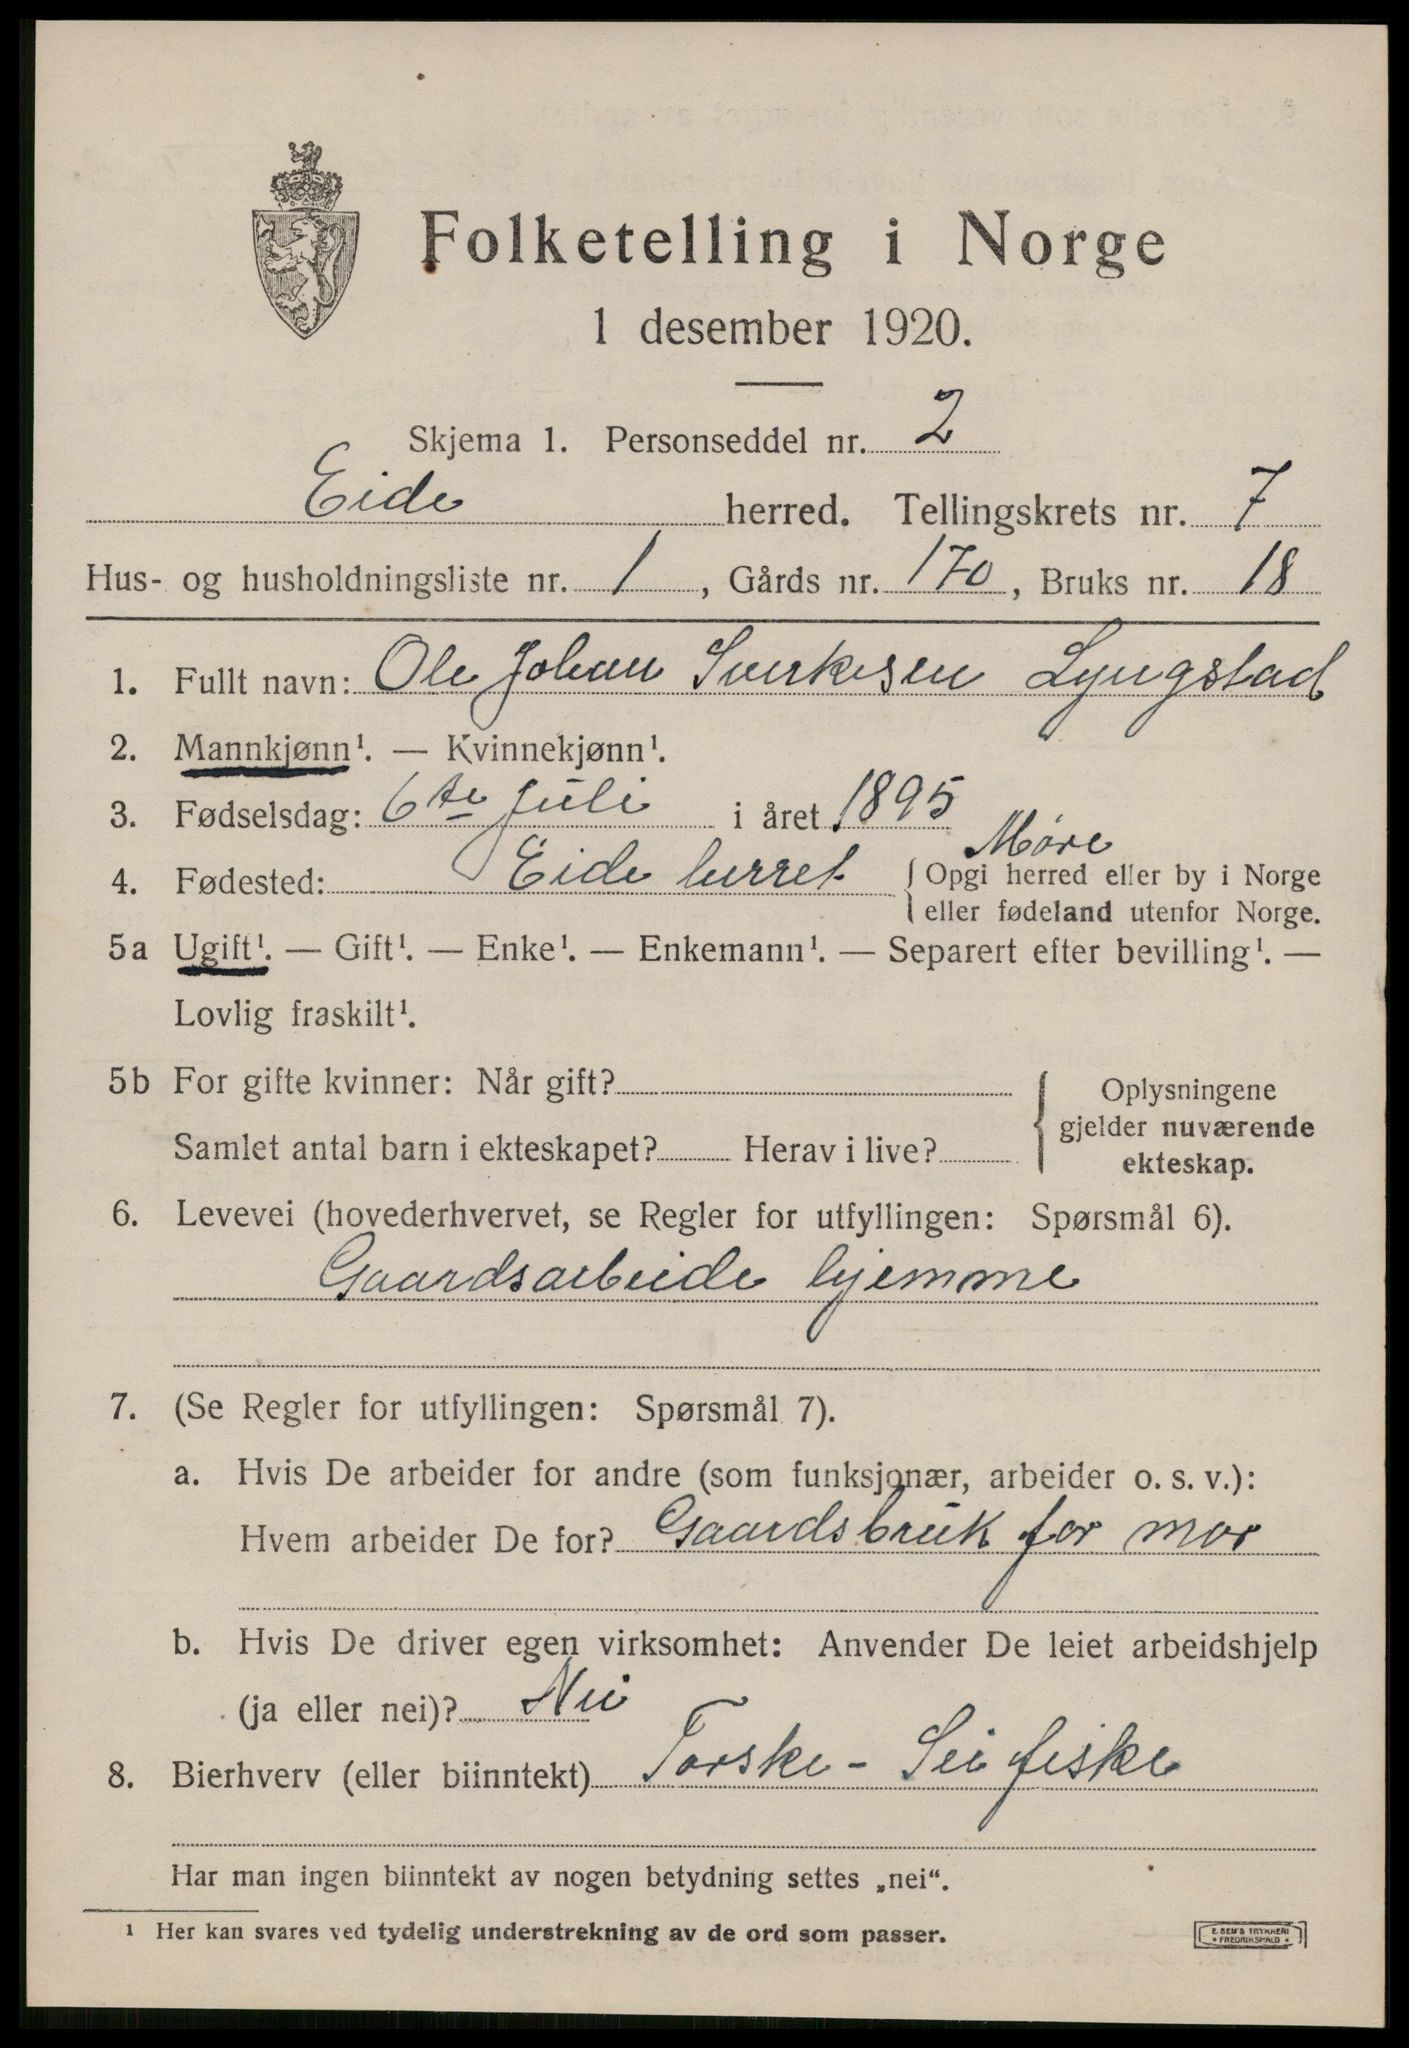 Folketelling i Norge
1 desember 1920.
Skjema 1. Personseddel nr. 2
Eide herred. Tellingskrets nr. 7
Hus- og husholdningsliste nr. 1, Gårds nr. 170, Bruks nr. 18
1. Fullt navn: Ole Johan Sverkesen Lyngstad
2. Mannkjønn¹. — Kvinnekjønn¹.
3. Fødselsdag: 6te Juli i året 1895
Møre
4. Fødested: Eide herret { Opgi herred eller by i Norge
eller fødeland utenfor Norge.
5a Ugift¹. — Gift¹. — Enke¹. — Enkemann¹. — Separert efter bevilling¹. —
Lovlig fraskilt¹.
5b For gifte kvinner: Når gift? { Oplysningene
gjelder nuværende
Samlet antal barn i ekteskapet? Herav i live? ekteskap.
6. Levevei (hovederhvervet, se Regler for utfyllingen: Spørsmål 6).
Gaardsarbeide hjemme
7. (Se Regler for utfyllingen: Spørsmål 7).
a. Hvis De arbeider for andre (som funksjonær, arbeider o. s. v.):
Hvem arbeider De for? Gaardsbruk for mor
b. Hvis De driver egen virksomhet: Anvender De leiet arbeidshjelp
(ja eller nei)? Nei
8. Bierhverv (eller biinntekt) Torske - Sei fiske
Har man ingen biinntekt av nogen betydning settes „nei“.
¹ Her kan svares ved tydelig understrekning av de ord som passer.
E. SEM'S TRYKKERI
• FREDRIKSHALD •